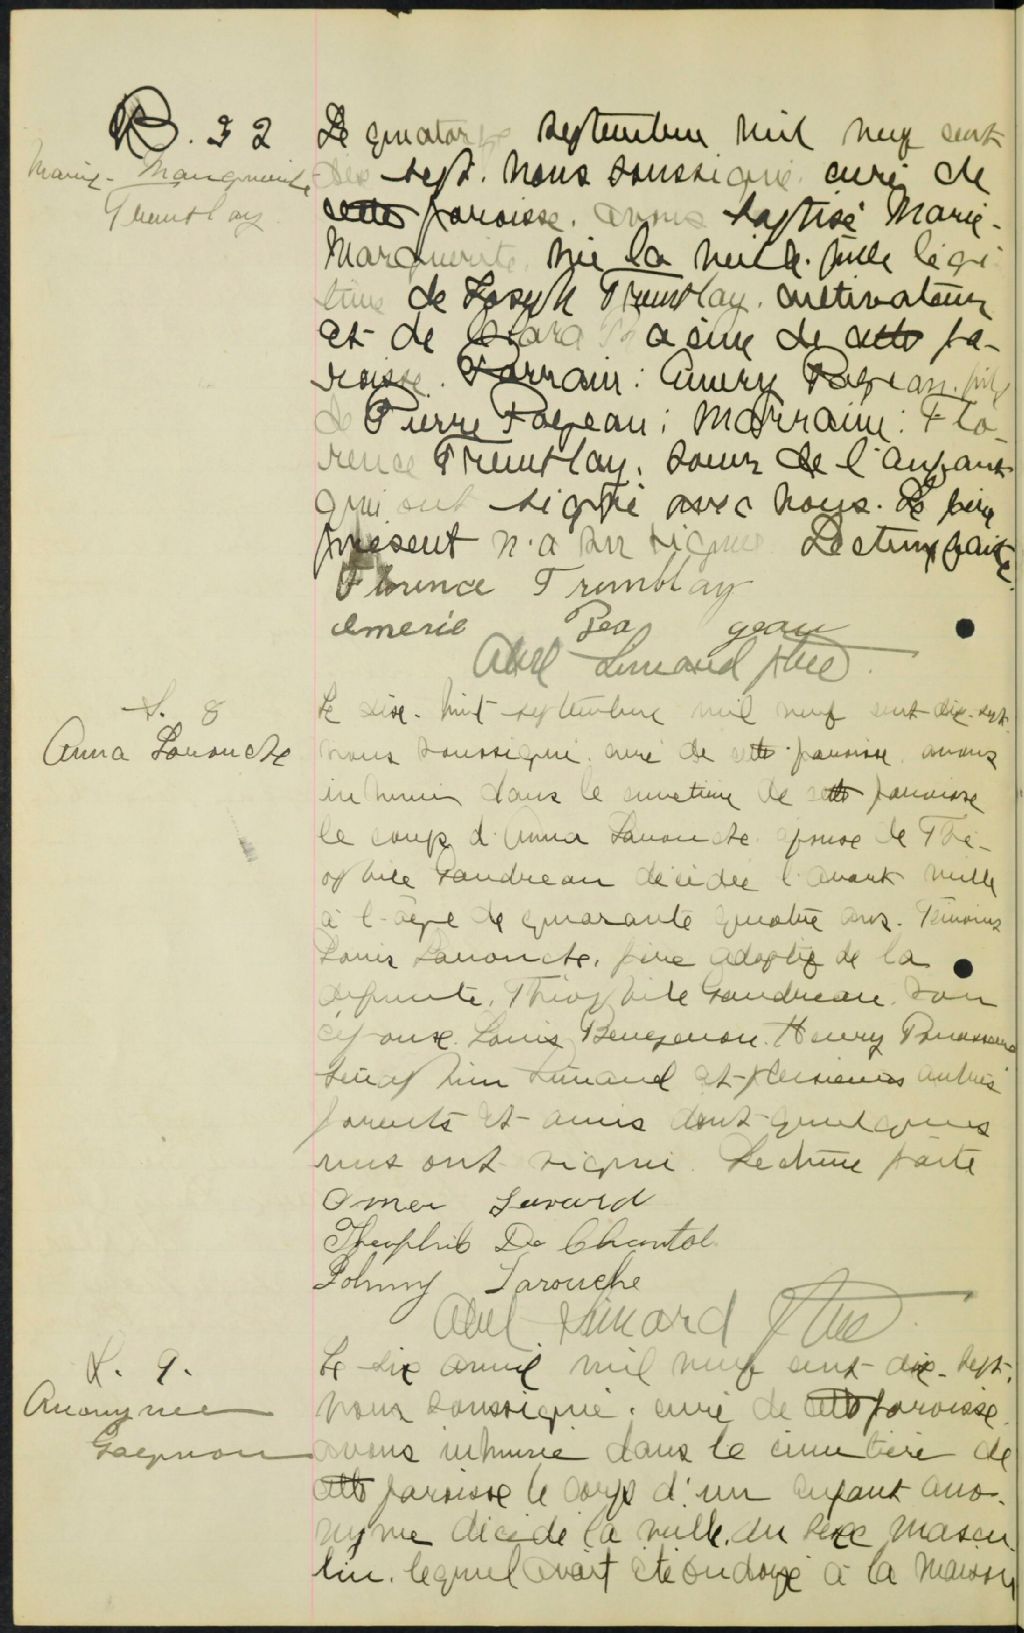 B. 32
Marie-Marguerite
Tremblay
Le quatorze septembre mil neuf cent
dix-sept, nous soussigné, curé de
cette paroisse, avons baptisé Marie-
Marguerite, née la veille, fille légi-
time de Joseph Tremblay, cultivateur
et de Clara de cette pa-
roisse. Parrain: Emery Pageau, fils
de Pierre Pageau; Marraine: Flo-
rence Tremblay, soeur de l'enfant
qui ont signé avec nous. Le père
présent n'a su signer. Lecture faite.
Florence Tremblay
Emerie Peageau
Abel Simard Ptre
S. 8
Anna Larouche
Le dix-huit septembre mil neuf cent-dix-sept
nous soussigné, curé de cette paroisse, avons
inhumé dans le cimetière de cette paroisse
le corps d'Anna Larouche, épouse de Thé-
ophile Gaudreau décédée l'avant veille
à l'âge de quarante quatre ans. Témoins
Louis Larouche, père adoptif de la
défunte, Théophile Gaudreau, son
époux, Louis Bergeron, Henry
Séraphin Simard et plusieurs autres
parents et amis dont quelques
uns ont signé. Lecture faite
Omer Savard
Theophile De Chantal
Johnny Larouche
Abel Simard Ptre
S. 9.
Anonyme
Gagnon
Le six avril mil neuf cent-dix-sept,
nous soussigné, curé de cette paroisse
avons inhumé dans le cimetière de
cette paroisse le corps d'un enfant ano-
nyme décédé la veille, du sexe mascu-
lin, lequel avait été ondoyé à la maison